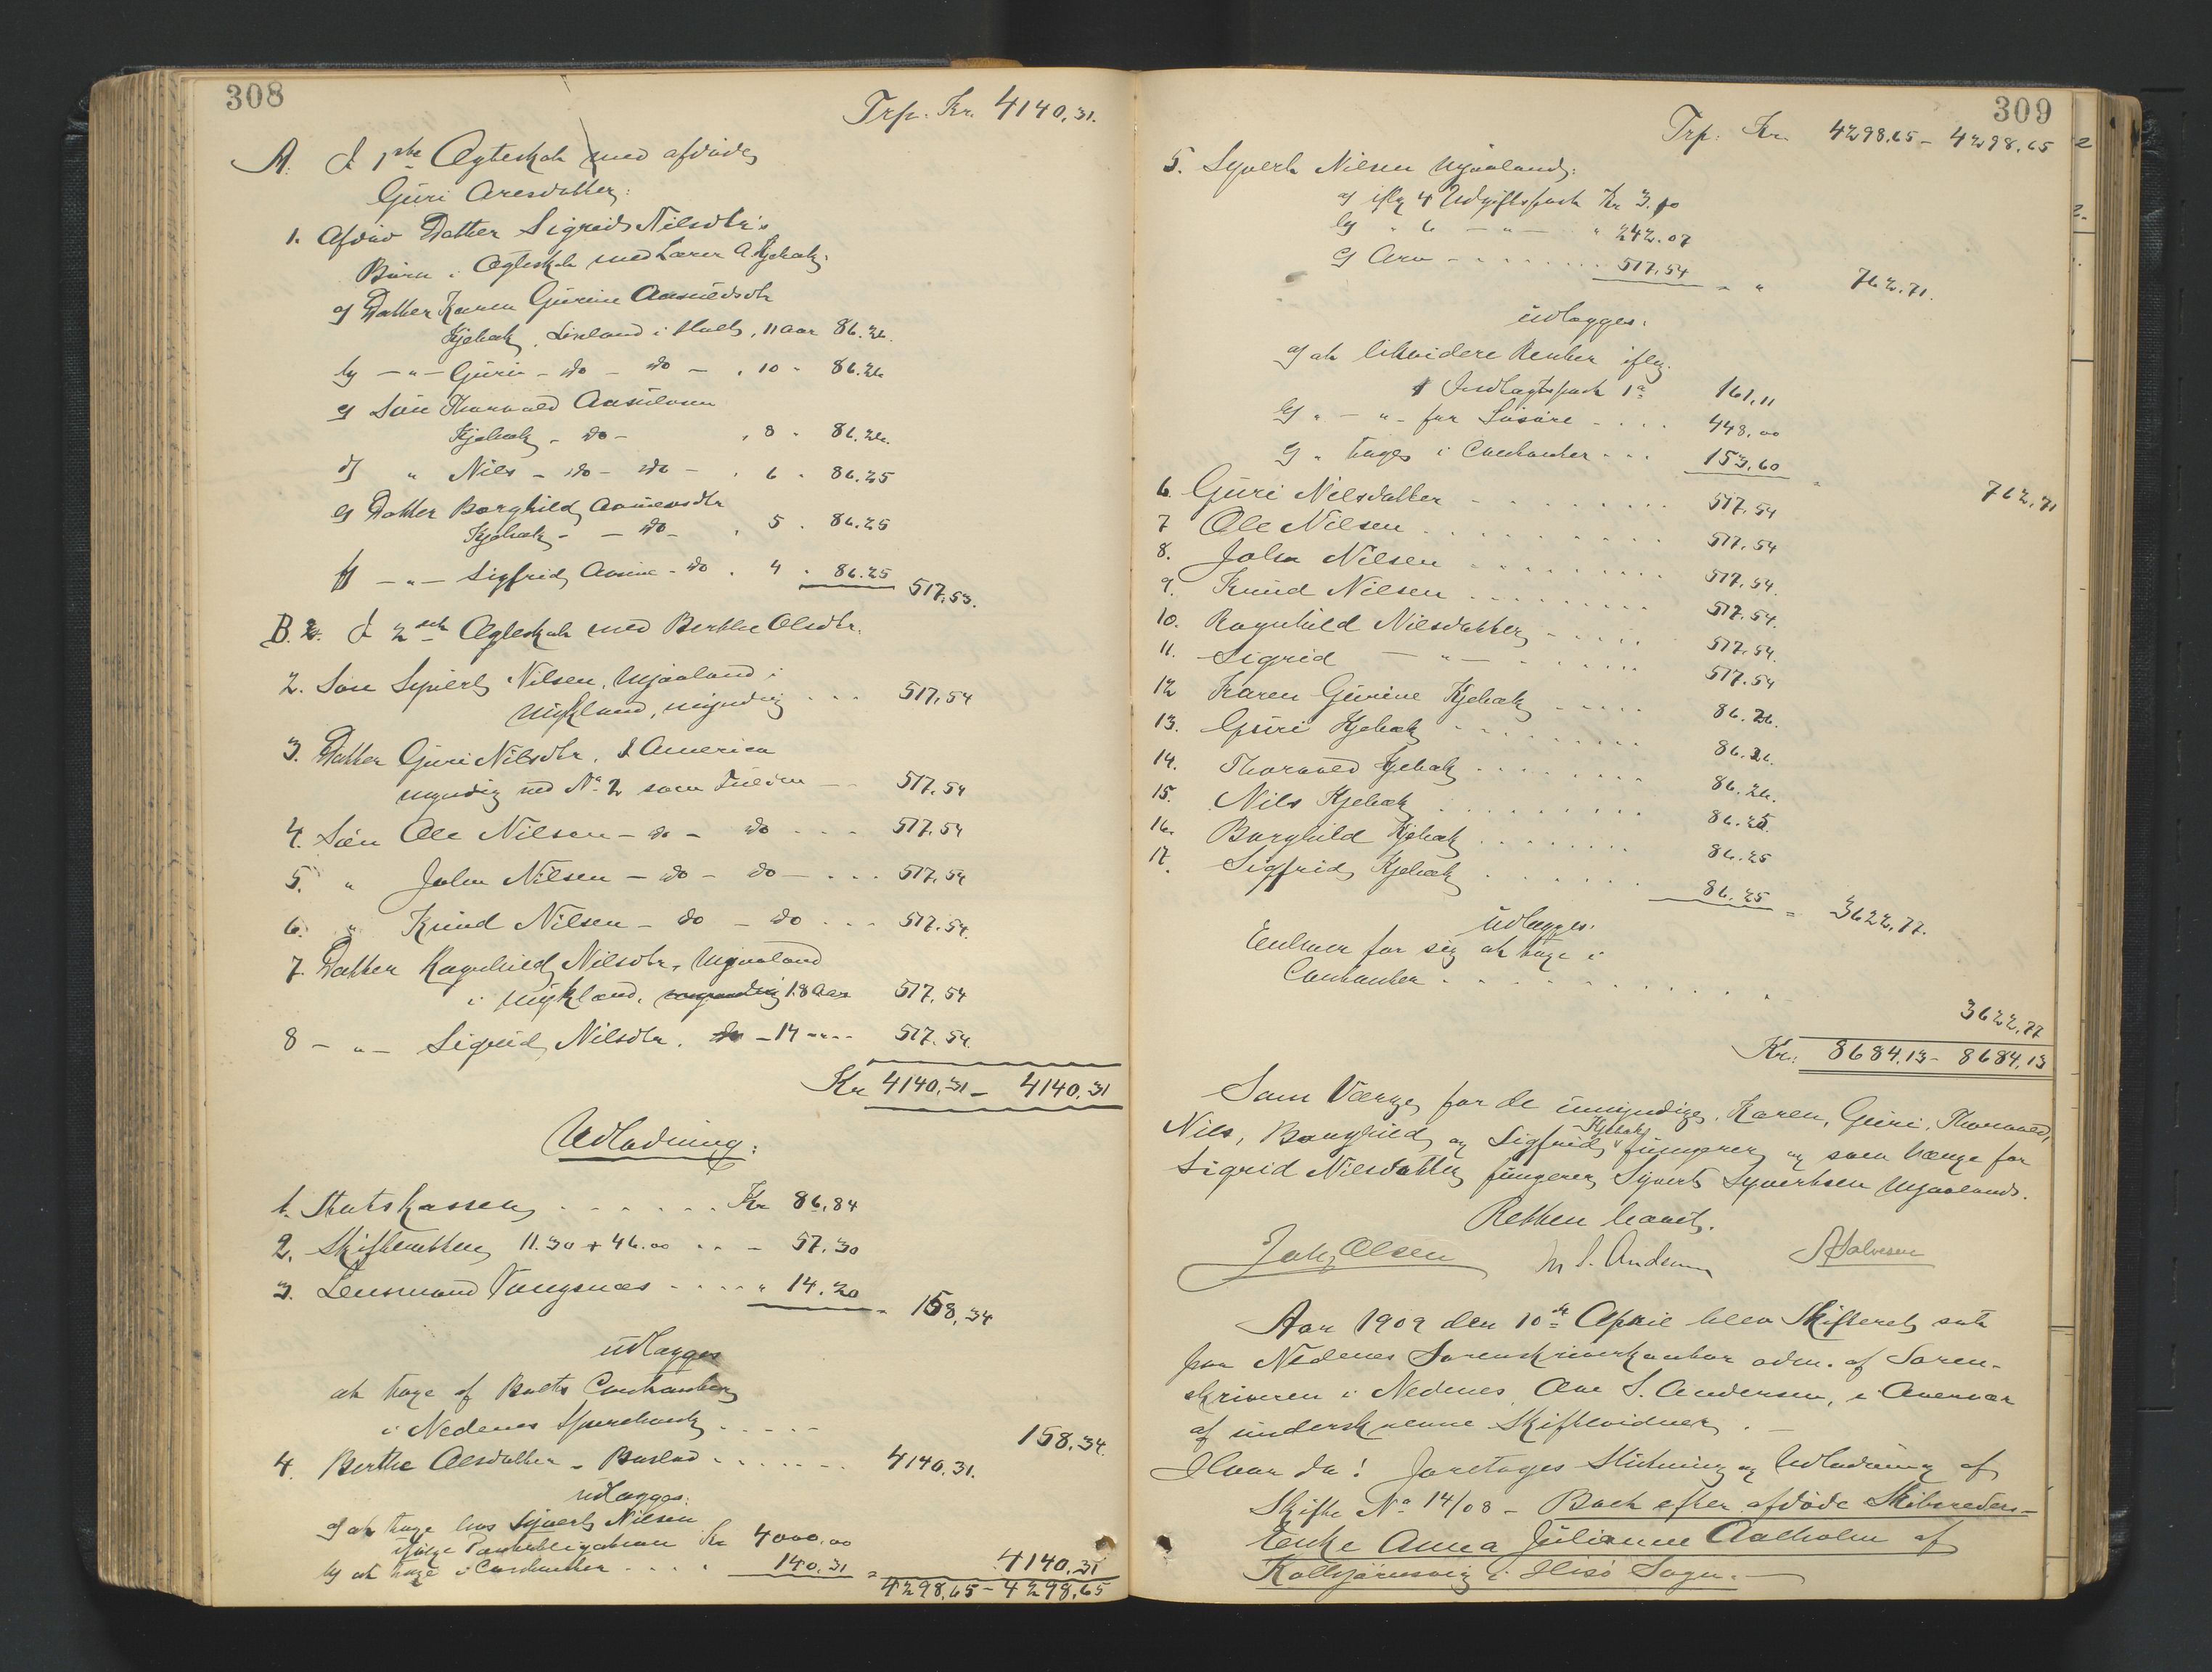 308
Trp. Kr. 4140,31.
A. I 1ste Ægteskab med afdøde
Guri Aresdatter:
1. Afdød Datter Sigrid Nilsdtr's
Børn i Ægteskab med Lærer A Kjebæk:
a) Datter Karen Gurine Aasulvsdtr
Kjebæk, Lisland i Holt, 11 aar 86.26.
b) — " — Guri — do — do — , 10 - 86.26
c) Søn Thorvald Aasulvsen
Kjebæk - do - , 8 - 86.26.
d) " Nils - do - do - , 6 - 86.25
e) Datter Borghild Aasulvsdtr
Kjebæk - - do - , 5 - 86.25
f) — " — Sigfrid Aasine - do , 4 - 86.25 517.53.
B. I 2det Ægteskab med Berthe Olsdtr.
2. Søn Syvert Nilsen, Mjaaland i
Mykland, myndig . . . 517,54
3. Datter Guri Nilsdtr, I America
myndig med No 2 som Fuldm — 517.54
4. Søn Ole Nilsen - do - do . . . 517.54
5. " John Nilsen - do - do - . . . 517.54
6. " Knud Nilsen - do - do . . . 517.54.
7. Datter Ragnhild Nilsdtr, Mjaaland
i Mykland, 18 Aar 517.54
8 — " — Sigrid Nilsdtr. do - 14 - - - 517.54.
Kr 4140,31 — 4140,31
Udlodning:
1. Statskassen . . . . . . Kr 86,84
2. Skifteretten 11.30 + 46.00 . . - 57.30
3. Lensmand Vangsnæs . . . . " 14.20 = 158,34
udlægges
at hæve af Boets Contanter
i Nedenes Sparebank . . . . . 158.34.
4. Berthe Olsdatter - Boslod . . . . . . . 4140,31.
udlægges:
a) at hæve hos Syvert Nilsen
ifølge Panteobligation Kr 4000,00
b) at hæve i Contanter . . . . 140.31 = 4140,31
4298,65 — 4298,65
309
Trp. Kr. 4298.65 — 4298,65
5. Syvert Nilsen Mjaaland:
a) iflg 4 Udgiftspost Kr 3.10
b) " 6 — " — " 242.07
c) Arv - - - - - - . . . 517.54 " " 762.71.
udlægges:
a) at likvidere Renter iflg.
Indtægtspost 1a 161,11
b) " — " - for Løsøre - . . . 448,00
c) " hæves i Contanter . . . 153,60 " 762,71
6. Guri Nilsdatter - . . . . . . . . 517.54
7 Ole Nilsen . . . . . . . . . . 517.54
8. John Nilsen . . . . . . . . . 517.54.
9. Knud Nilsen . . . . . . . . . 517.54.
10. Ragnhild Nilsdatter - . . . . 517.54.
11. Sigrid — " — . . . . . . . 517.54
12 Karen Gurine Kjebæk - - . . . 86.26.
13. Guri Kjebæk . . . . . . . . . 86.26.
14. Thorvald Kjebæk . . . . . . . . 86.26.
15. Nils Kjebæk . . . . . . . . . . 86.25.
16. Borghild Kjebæk . . . . . . . . 86.25
17. Sigfrid Kjebæk . . . . . . . 86.25 = 3622,77.
udlægges:
Enhver for sig at hæve i
Contanter . . . . . . . . . . . . 3622,77
Kr: 8684.13 — 8684,13
Som Værge for de umyndige, Karen, Guri, Thorvald,
Nils, Borghild og Sigfrid Kjebæk fungerer og som Værge for
Sigrid Nilsdatter fungerer Syvert Syvertsen Mjaaland.
Retten hævet.
Joh. Olsen M S. Andersen Halvorsen
Aar 1909 den 10de April blev Skifteret sat
paa Nedenes Sorenskriverkontor adm. af Soren-
skriveren i Nedenes, Ove S. Andersen, i Overvær
af underskrevne Skiftevidner. —
Hvor da! Foretoges Slutning og Udlodning af
Skifte No 14/08 — Boet efter afdøde Skibsreders-
enke Anna Julianne Aalholm af
Kolbjørnsvig i Hisø Sogn. —